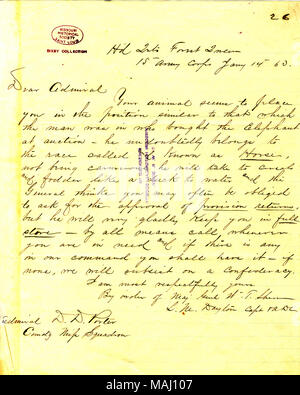 26
MISSOURI
HISTORICAL
SOCIETY
SAINT LOUIS
BIXBY COLLECTION
Hd Qrs Forest Queen
15 Army Corps Jany 14 63.
Dear Admiral
Your animal seems to place
you in the position similar to that which
the man was in who bought the Elephant
at auction – he undoubtedly belongs to
the race called & known as Horse,
not being he will take to
fodder like a duck to water & the
General thinks you may often be obliged
to ask for the approval of provision returns,
but he will very gladly keep you in full
store – by all means call whenever
you are in need & if there is any
in our command you shall have it – if
none, we will subsist on a Confederacy.
I am most respectfully yours
By order of Maj Genl W. T. Sherman
L. M. Dayton Capt & A.D.C.
Admiral D. D. Porter
Comdg Miss Squadron
alamy
Image ID: MAJ107
www.alamy.com